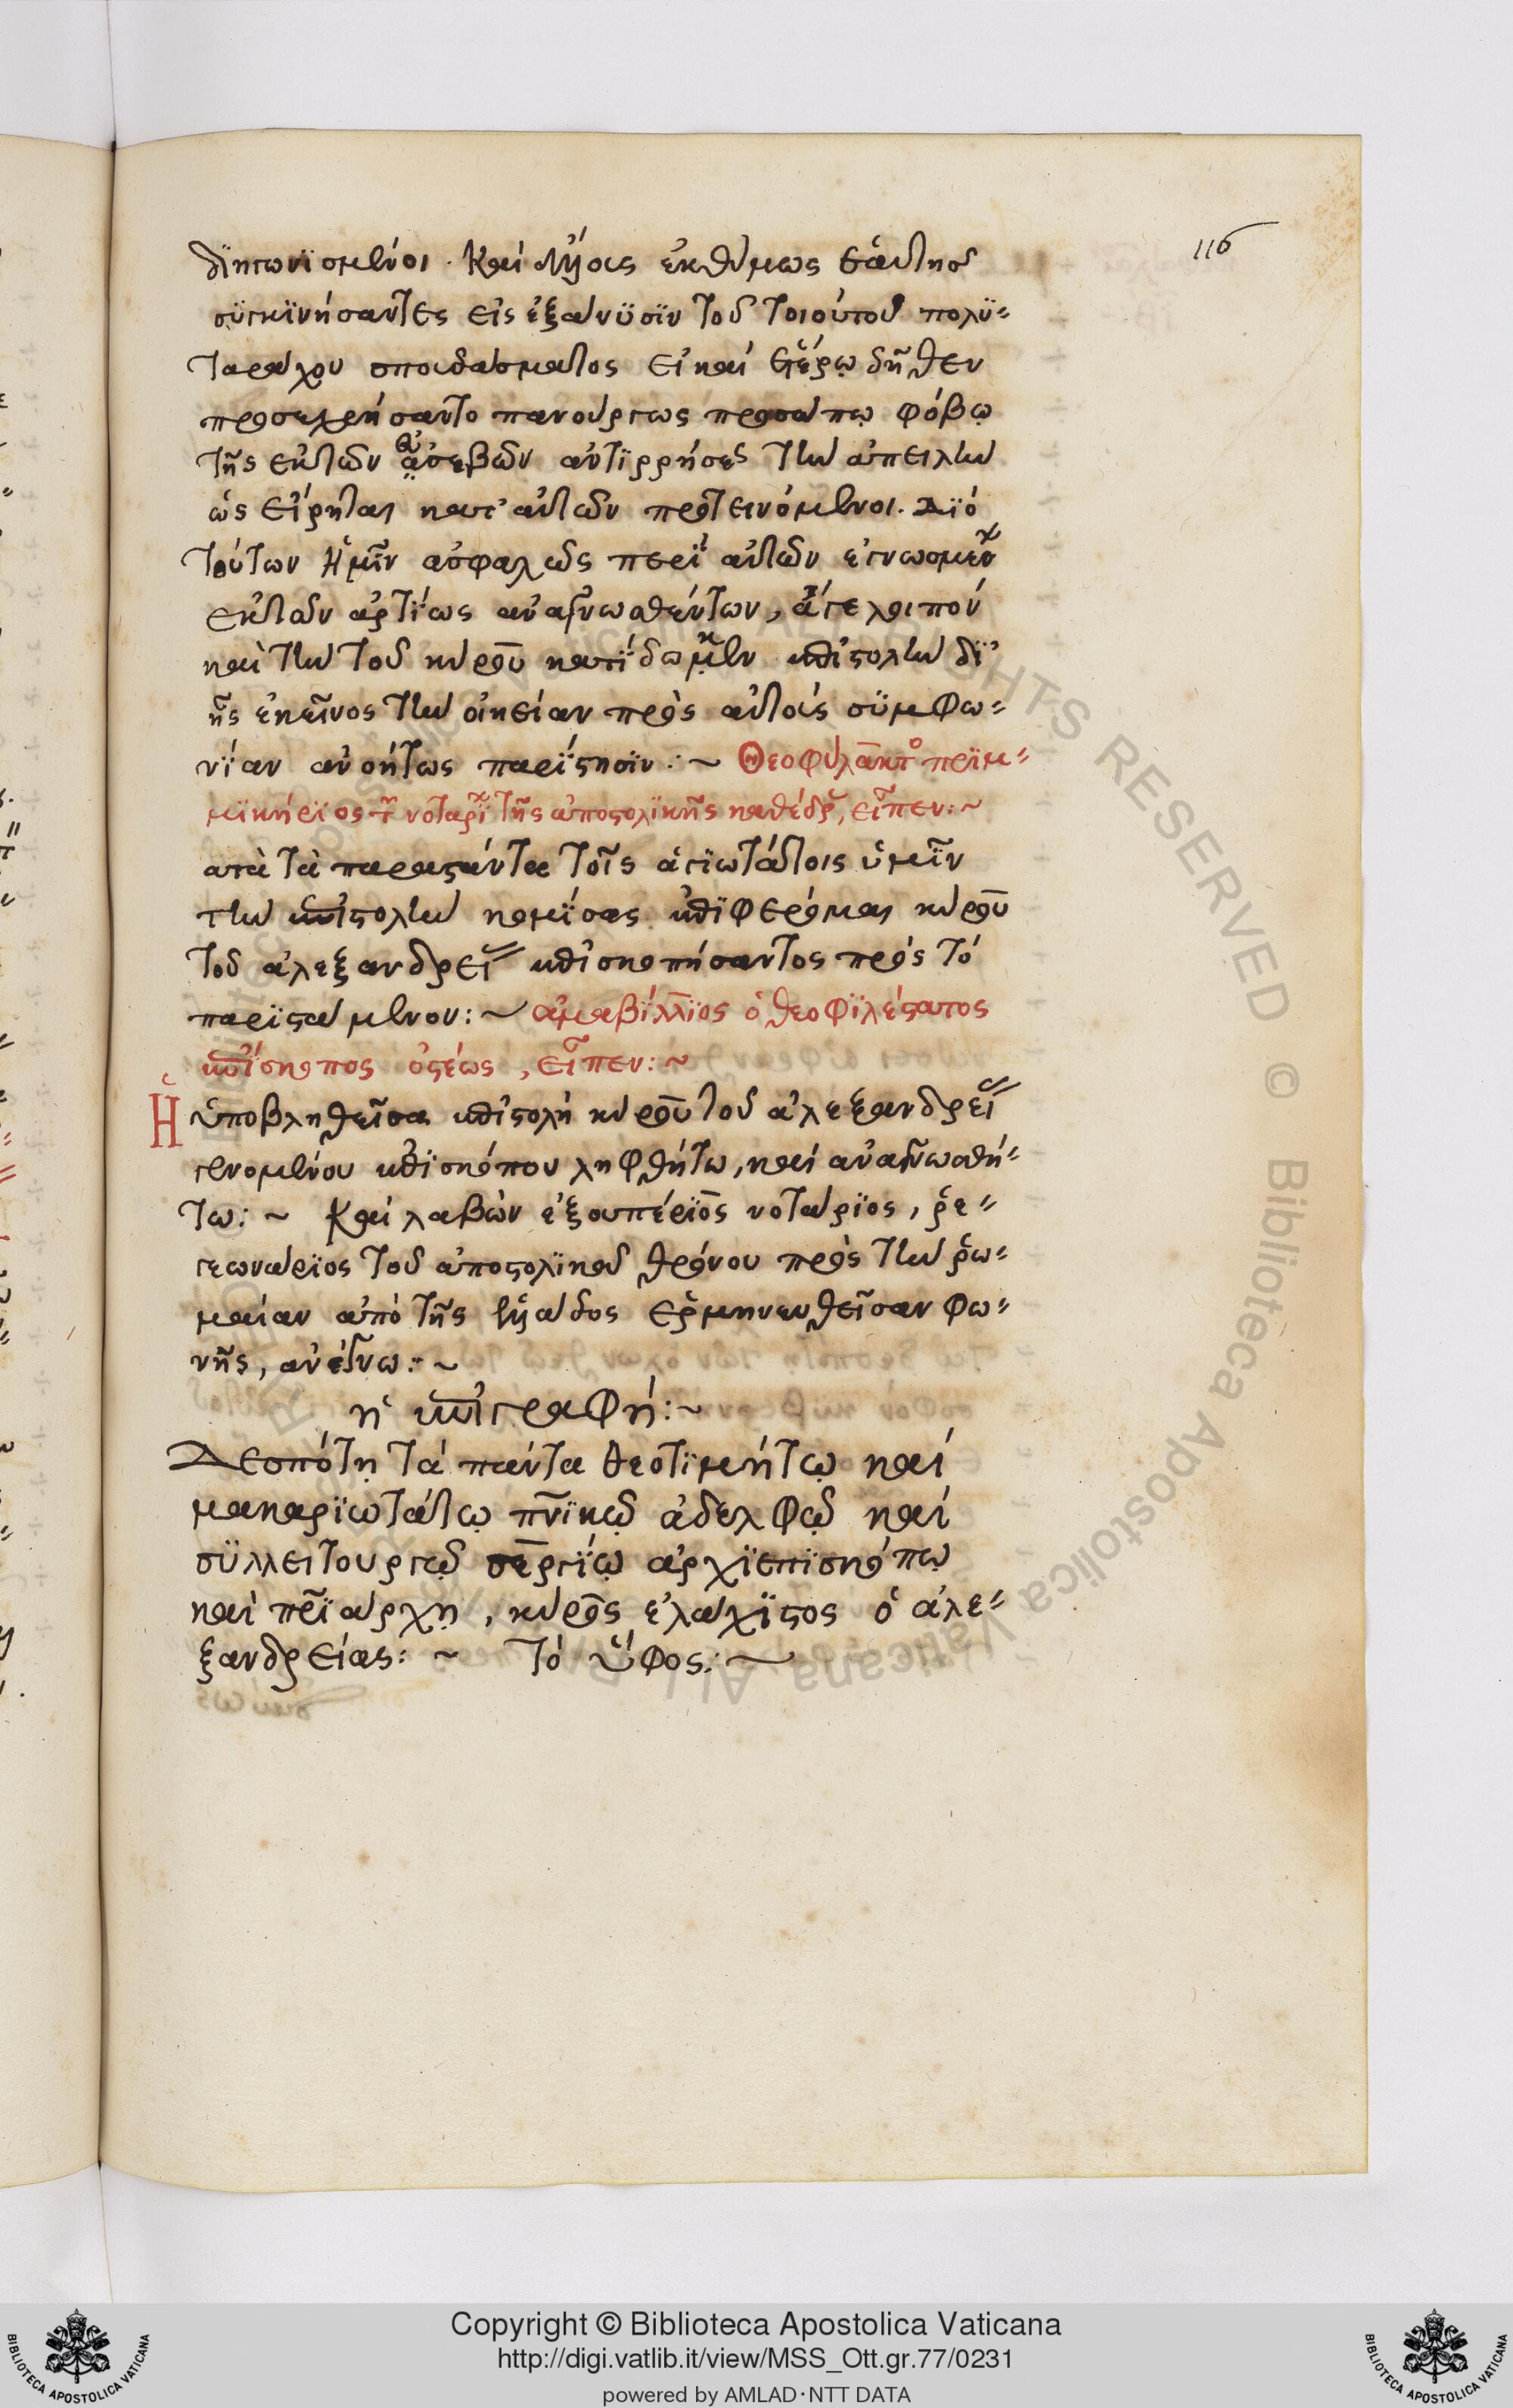 116
διηγωνισμένοι. καὶ ἄλλους ἐκθύμως ἑαυτοῖς
συγκινήσαντες εἰς ἐξάνυσιν τοῦ τοιούτου πολυ-
ταράχου σπουδάσματος εἰ καὶ ἑτέρῳ δῆθεν
προσεχρήσαντο πανούργως προσώπῳ φόβῳ
τῆς ἐκ τῶν εὐσεβῶν ἀντιρρήσεως τὴν ἀπειλὴν
ὡς εἴρηται κατ' αὐτῶν προτεινόμενοι. Διὸ
τούτων ἡμῖν ἀσφαλῶς περὶ αὐτῶν ἐγνωσμένων
ἐκ τῶν ἀρτίως ἀναγνωσθέντων, ἄγε λοιπὸν
καὶ τὴν τοῦ κύρου κατίδωμεν ἐπιστολὴν δι'
ἧς ἐκεῖνος τὴν οἰκείαν πρὸς αὐτοὺς συμφω-
νίαν ἀνοήτως παρίστησιν:~ Θεοφύλακτος πριμ-
μικήριος τῶν νοταρίων τῆς ἀποστολικῆς καθέδρας, εἶπεν:~
κατὰ τὰ παραστάντα τοῖς ἁγιωτάτοις ὑμῖν
τὴν ἐπιστολὴν κομίσας ἐπιφέρομαι κύρου
τοῦ ἀλεξανδρείας ἐπισκοπήσαντος πρὸς τὸ
παριστάμενον:~ ἀμαβίλλιος ὁ θεοφιλέστατος
ἐπίσκοπος ὀστέως, εἶπεν:~
Ἡ ὑποβληθεῖσα ἐπιστολὴ κύρου τοῦ ἀλεξανδρείας
γενομένου ἐπισκόπου ληφθήτω, καὶ ἀναγνωσθή-
τω:~ Καὶ λαβὼν ἐξουπέριος νοτάριος, ῥε-
γεωνάριος τοῦ ἀποστολικοῦ θρόνου πρὸς τὴν ῥω-
μαίαν ἀπὸ τῆς ἑλλάδος ἑρμηνευθεῖσαν φω-
νῆς, ἀνέγνω:~
ἡ ἐπιγραφή:~
Δεσπότῃ τὰ πάντα θεοτιμήτῳ καὶ
μακαριωτάτῳ πνικῷ ἀδελφῷ καὶ
συλλειτουργῷ σεργίῳ ἀρχιεπισκόπῳ
καὶ πριάρχῃ, κύρος ἐλάχιστος ὁ ἀλε-
ξανδρείας:~ Τὸ ὕφος:~
Copyright © Biblioteca Apostolica Vaticana
http://digi.vatlib.it/view/MSS_Ott.gr.77/0231
powered by AMLAD·NTT DATA